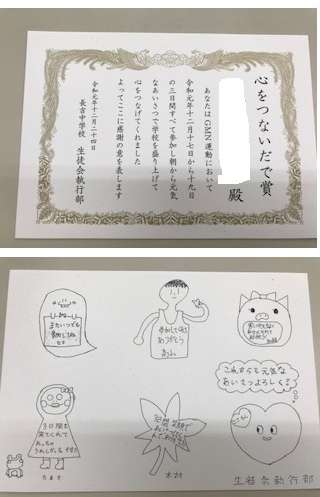 心をつないだで賞
殿
あなたはGMN運動において
令和元年十二月十七日から十九日
の三日間すべて参加し朝から元気
なあいさつで学校を盛り上げて
心をつなげてくれました
よってここに感謝の意を表します
令和元年十二月二十四日
長吉中学校 生徒会執行部
またいつでも
参加してね
参加してくれて
ありがとう
これからも元気な
あいさつよろしく
3日間も
来てくれて
めっちゃ
うれしかったです
生徒会執行部